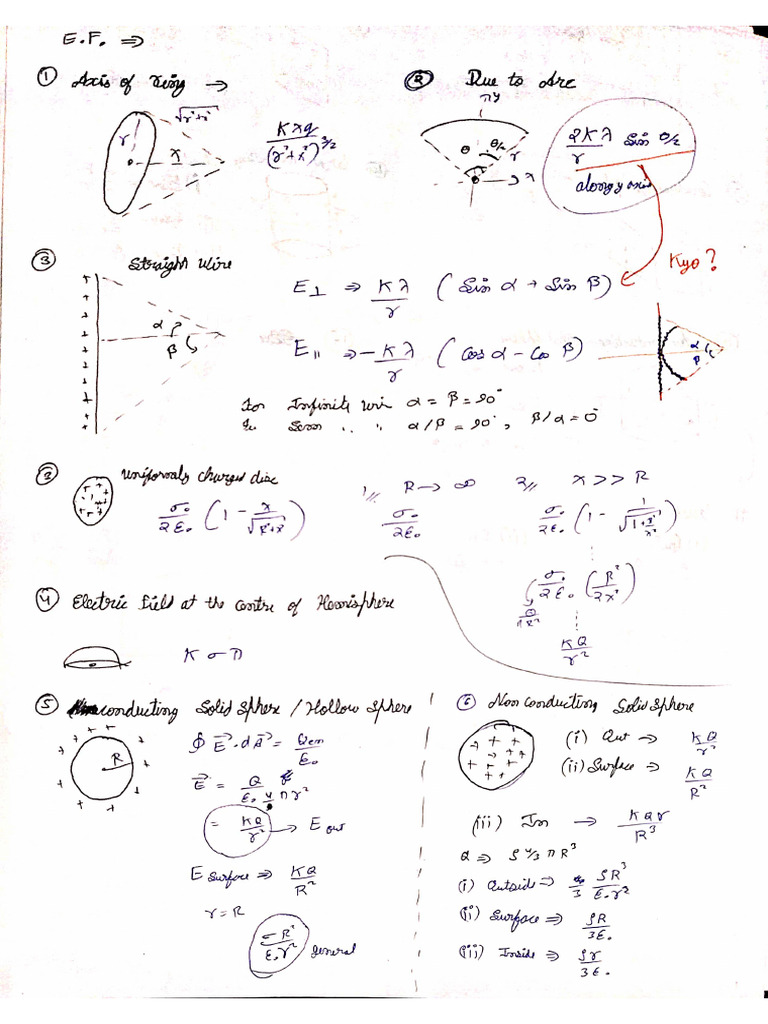 E.F. ⇒
① Axis of ring →
√r²+x²
r
x
Kxq / (r²+x²)^3/2
② Due to Arc
y
θ
θ/2
r
x
2Kλ/r Sin θ/2
along y axis
③ Straight Wire
α
β
E⊥ ⇒ Kλ/r (Sin α + Sin β)
Kyo?
E|| ⇒ -Kλ/r (Cos α - Co β)
α
β
For Infinite Wir α = β = 90°
α/β = 90°, β/α = 0°
Uniformaly charged disc
σ/2ε₀ (1 - x/√R²+x²)
1,, R → ∞
σ/2ε₀
2,, x >> R
σ/2ε₀ (1 - 1/√1+R²/x²)
σ/2ε₀ (R²/2x²)
Q/πR²
KQ/r²
④ Electric Field at the centre of Hemisphere
K σ π
⑤ conducting Solid Sphere / Hollow Sphere
R
∮ E⃗·dA⃗ = Qen/ε₀
E⃗ = Q/ε₀ 4πr²
= KQ/r² → E out
E Surface ⇒ KQ/R²
r = R
σR²/ε₀r² general
⑥ Non conducting Solid Sphere
(i) Out → KQ/r²
(ii) Surface ⇒ KQ/R²
(iii) In → KQr/R³
Q ⇒ ρ 4/3 π R³
(i) Outside ⇒ ρR³/3ε₀r²
(ii) Surface ⇒ ρR/3ε₀
(iii) Inside ⇒ ρr/3ε₀